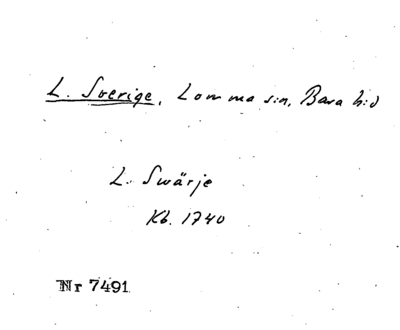 L. Sverige, Lomma sn, Bara hd
L. Swärje
Kb. 1740
Nr 7491